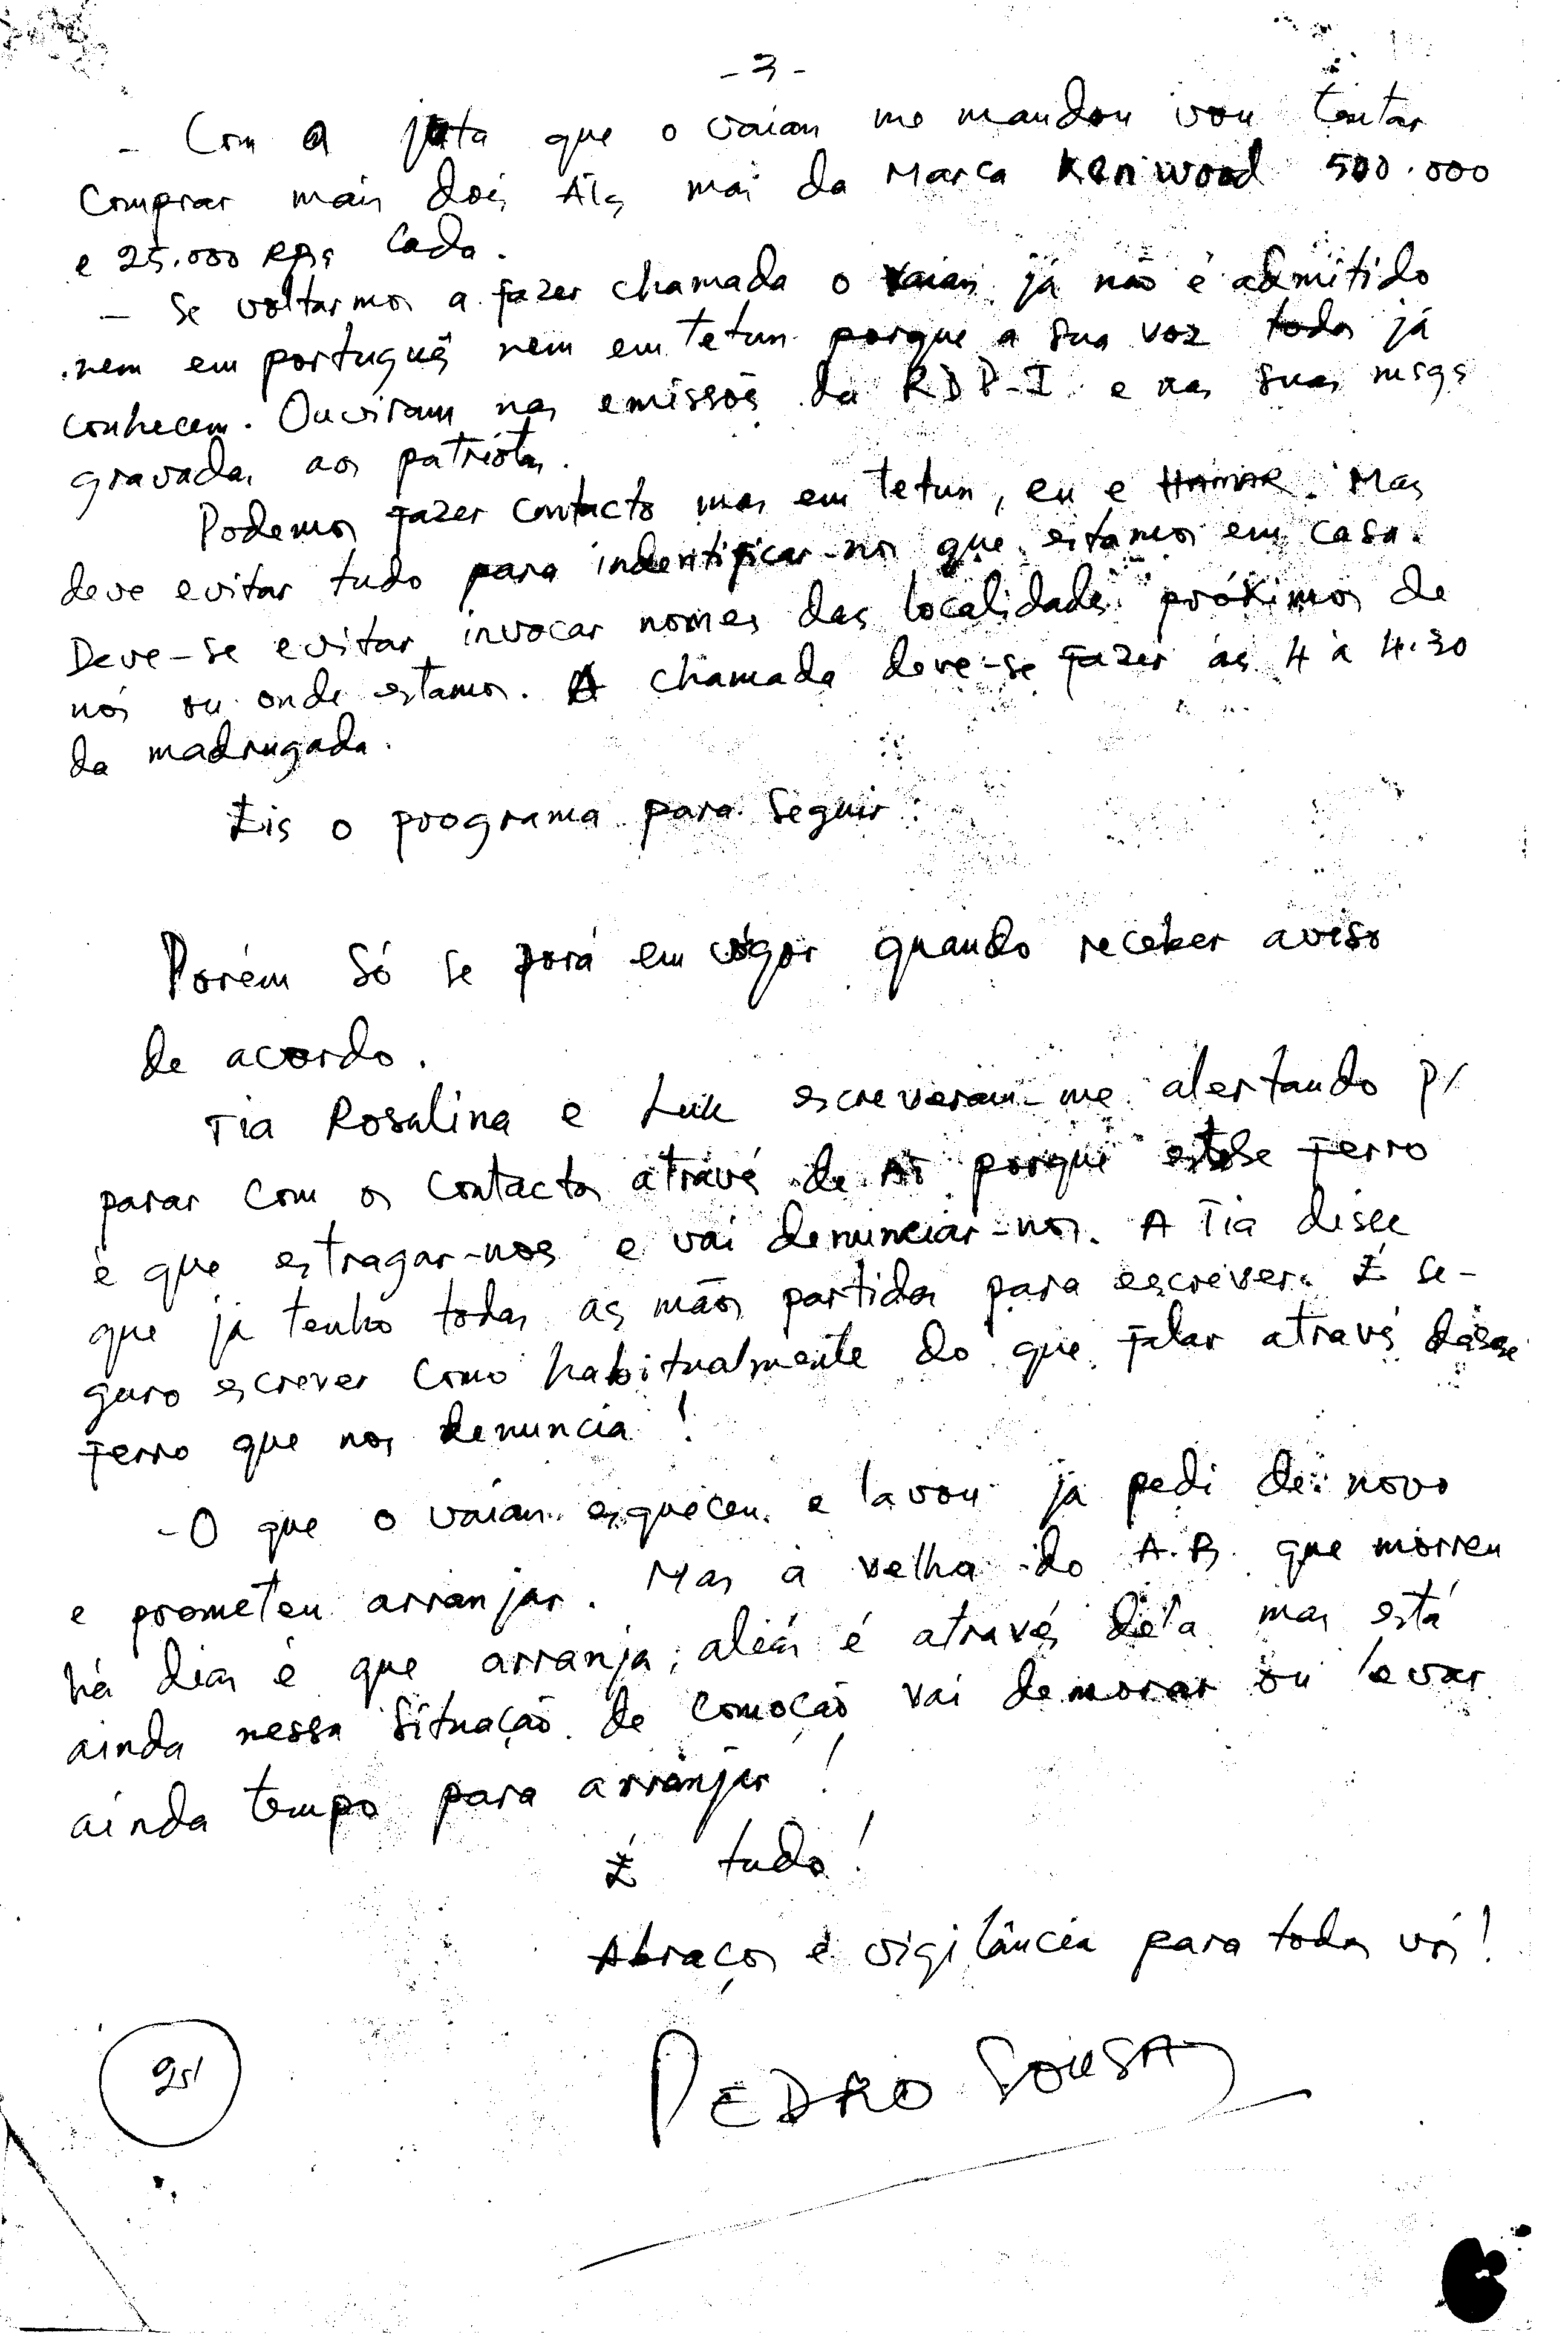 - 3 -
- Com a juta que o vaian me mandou vou tentar
comprar mais dois mai da Marca Kenwood 500.000
e 25.000 RPs cada.
- Se voltarmos a fazer chamada o vaian já não é admitido
nem em português nem em tetun porque a sua voz todos já
conhecem. Ouviram nas emissões da RDP-I e nas suas msgs
gravadas aos patriotas.
Podemos fazer contacto mas em tetun, eu e HAMAR. Mas
deve evitar tudo para indentificar-nos que estamos em casa.
Deve-se evitar invocar nomes das localidades próximos de
nós ou onde estamos. A chamada deve-se fazer às 4 à 4.30
da madrugada.
Eis o programa para seguir:
Porém só se porá em vigor quando receber aviso
de acordo.
Tia Rosalina e escreveram-me alertando p/
parar com os contactos através de porque esse ferro
é que estragar-nos e vai denunciar-nos. A Tia disse
que já tenho todas as mãos partidas para escrever. É se-
guro escrever como habitualmente do que falar através desse
ferro que nos denuncia!
- O que o vaian esqueceu e lavou já pedi de novo
e prometeu arranjar. Mas a velha do A.B. que morreu
há dias é que arranja; aliás é através dela mas está
ainda nessa situação de comoção vai demorar ou levar
ainda tempo para arranjar!
É tudo!
Abraços e vigilância para todos vós!
PEDRO SOUSA